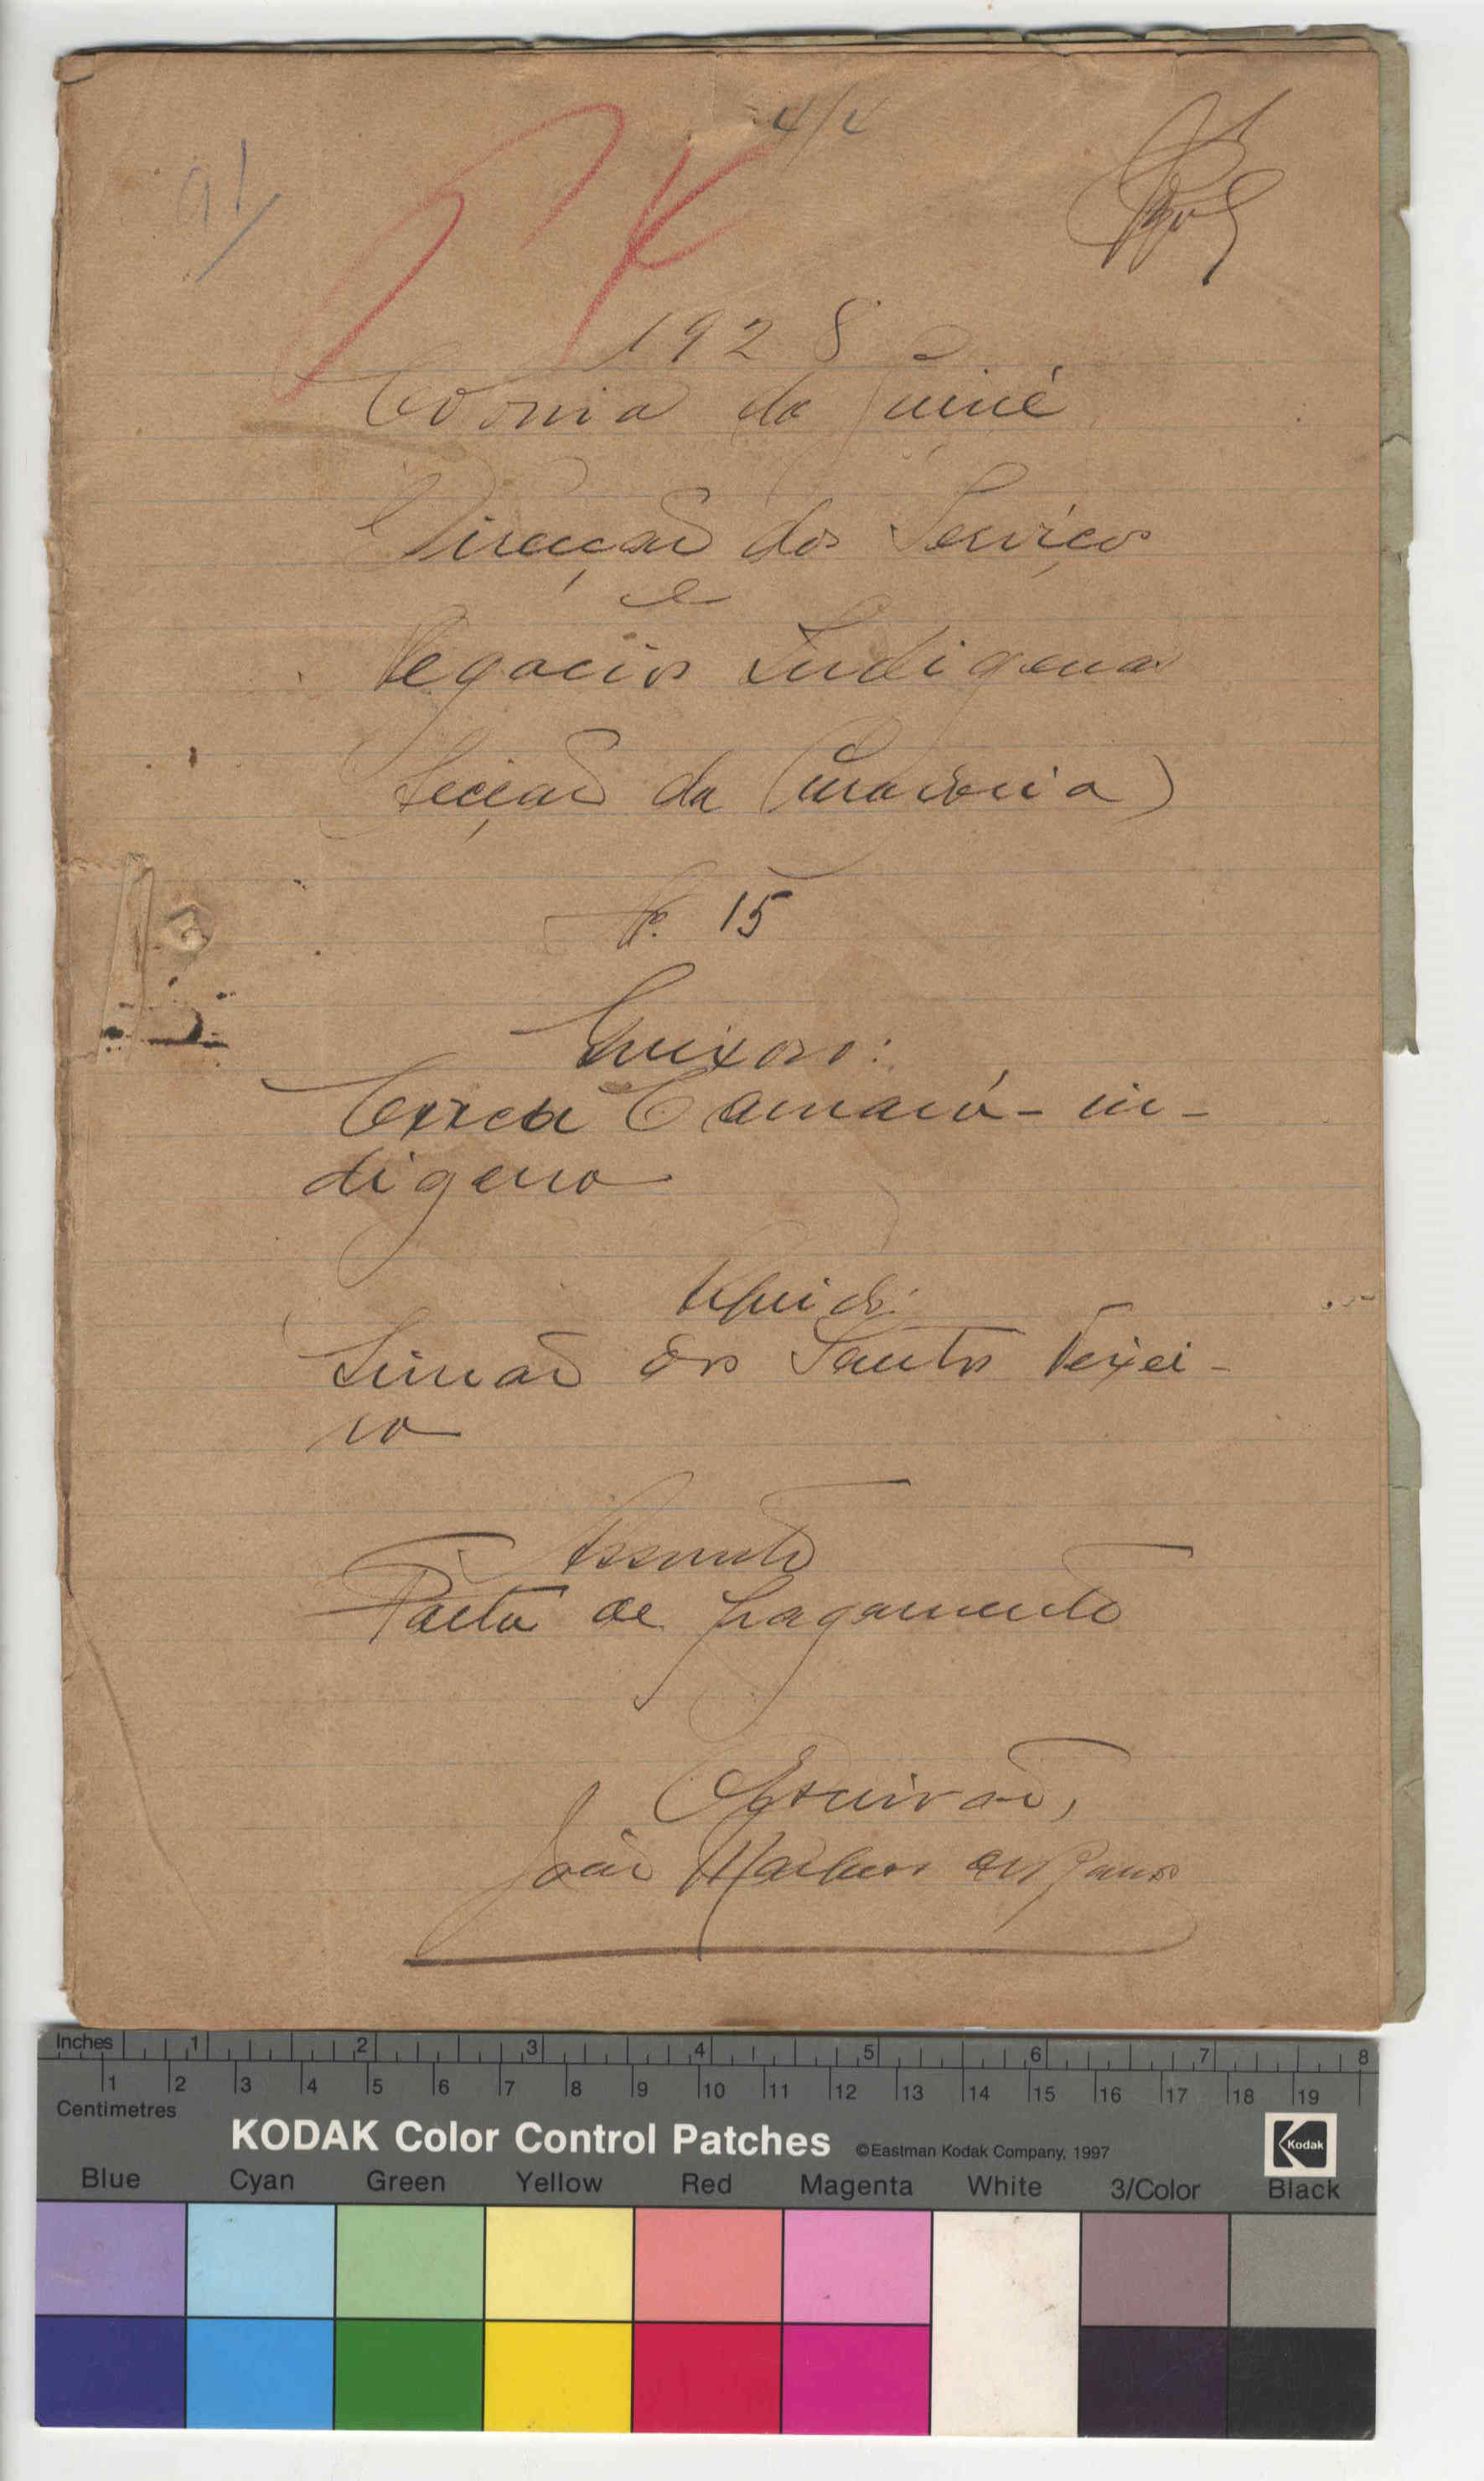 4/4
91
1928
Colonia da Guiné
Direcção dos Serviços
e
Negocios Indigenas
(Secção da Curadoria)
Nº. 15
Queixoso:
Camará - in-
digena
Arguido:
Simão dos Santos Teixei-
ra
Assunto
Falta de pagamento
O Escrivão,
João
Inches 1 2 3 4 5 6 7 8
1 2 3 4 5 6 7 8 9 10 11 12 13 14 15 16 17 18 19
Centimetres
KODAK Color Control Patches ©Eastman Kodak Company, 1997 Kodak
Blue Cyan Green Yellow Red Magenta White 3/Color Black